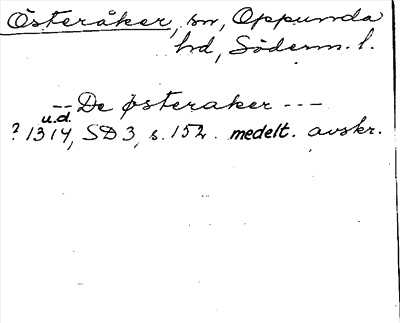 Österåker, sn, Oppunda
hd, Söderm. l.
-- De østeraker ---
u.d.
? 1314, SD 3, s. 152. medelt. avskr.